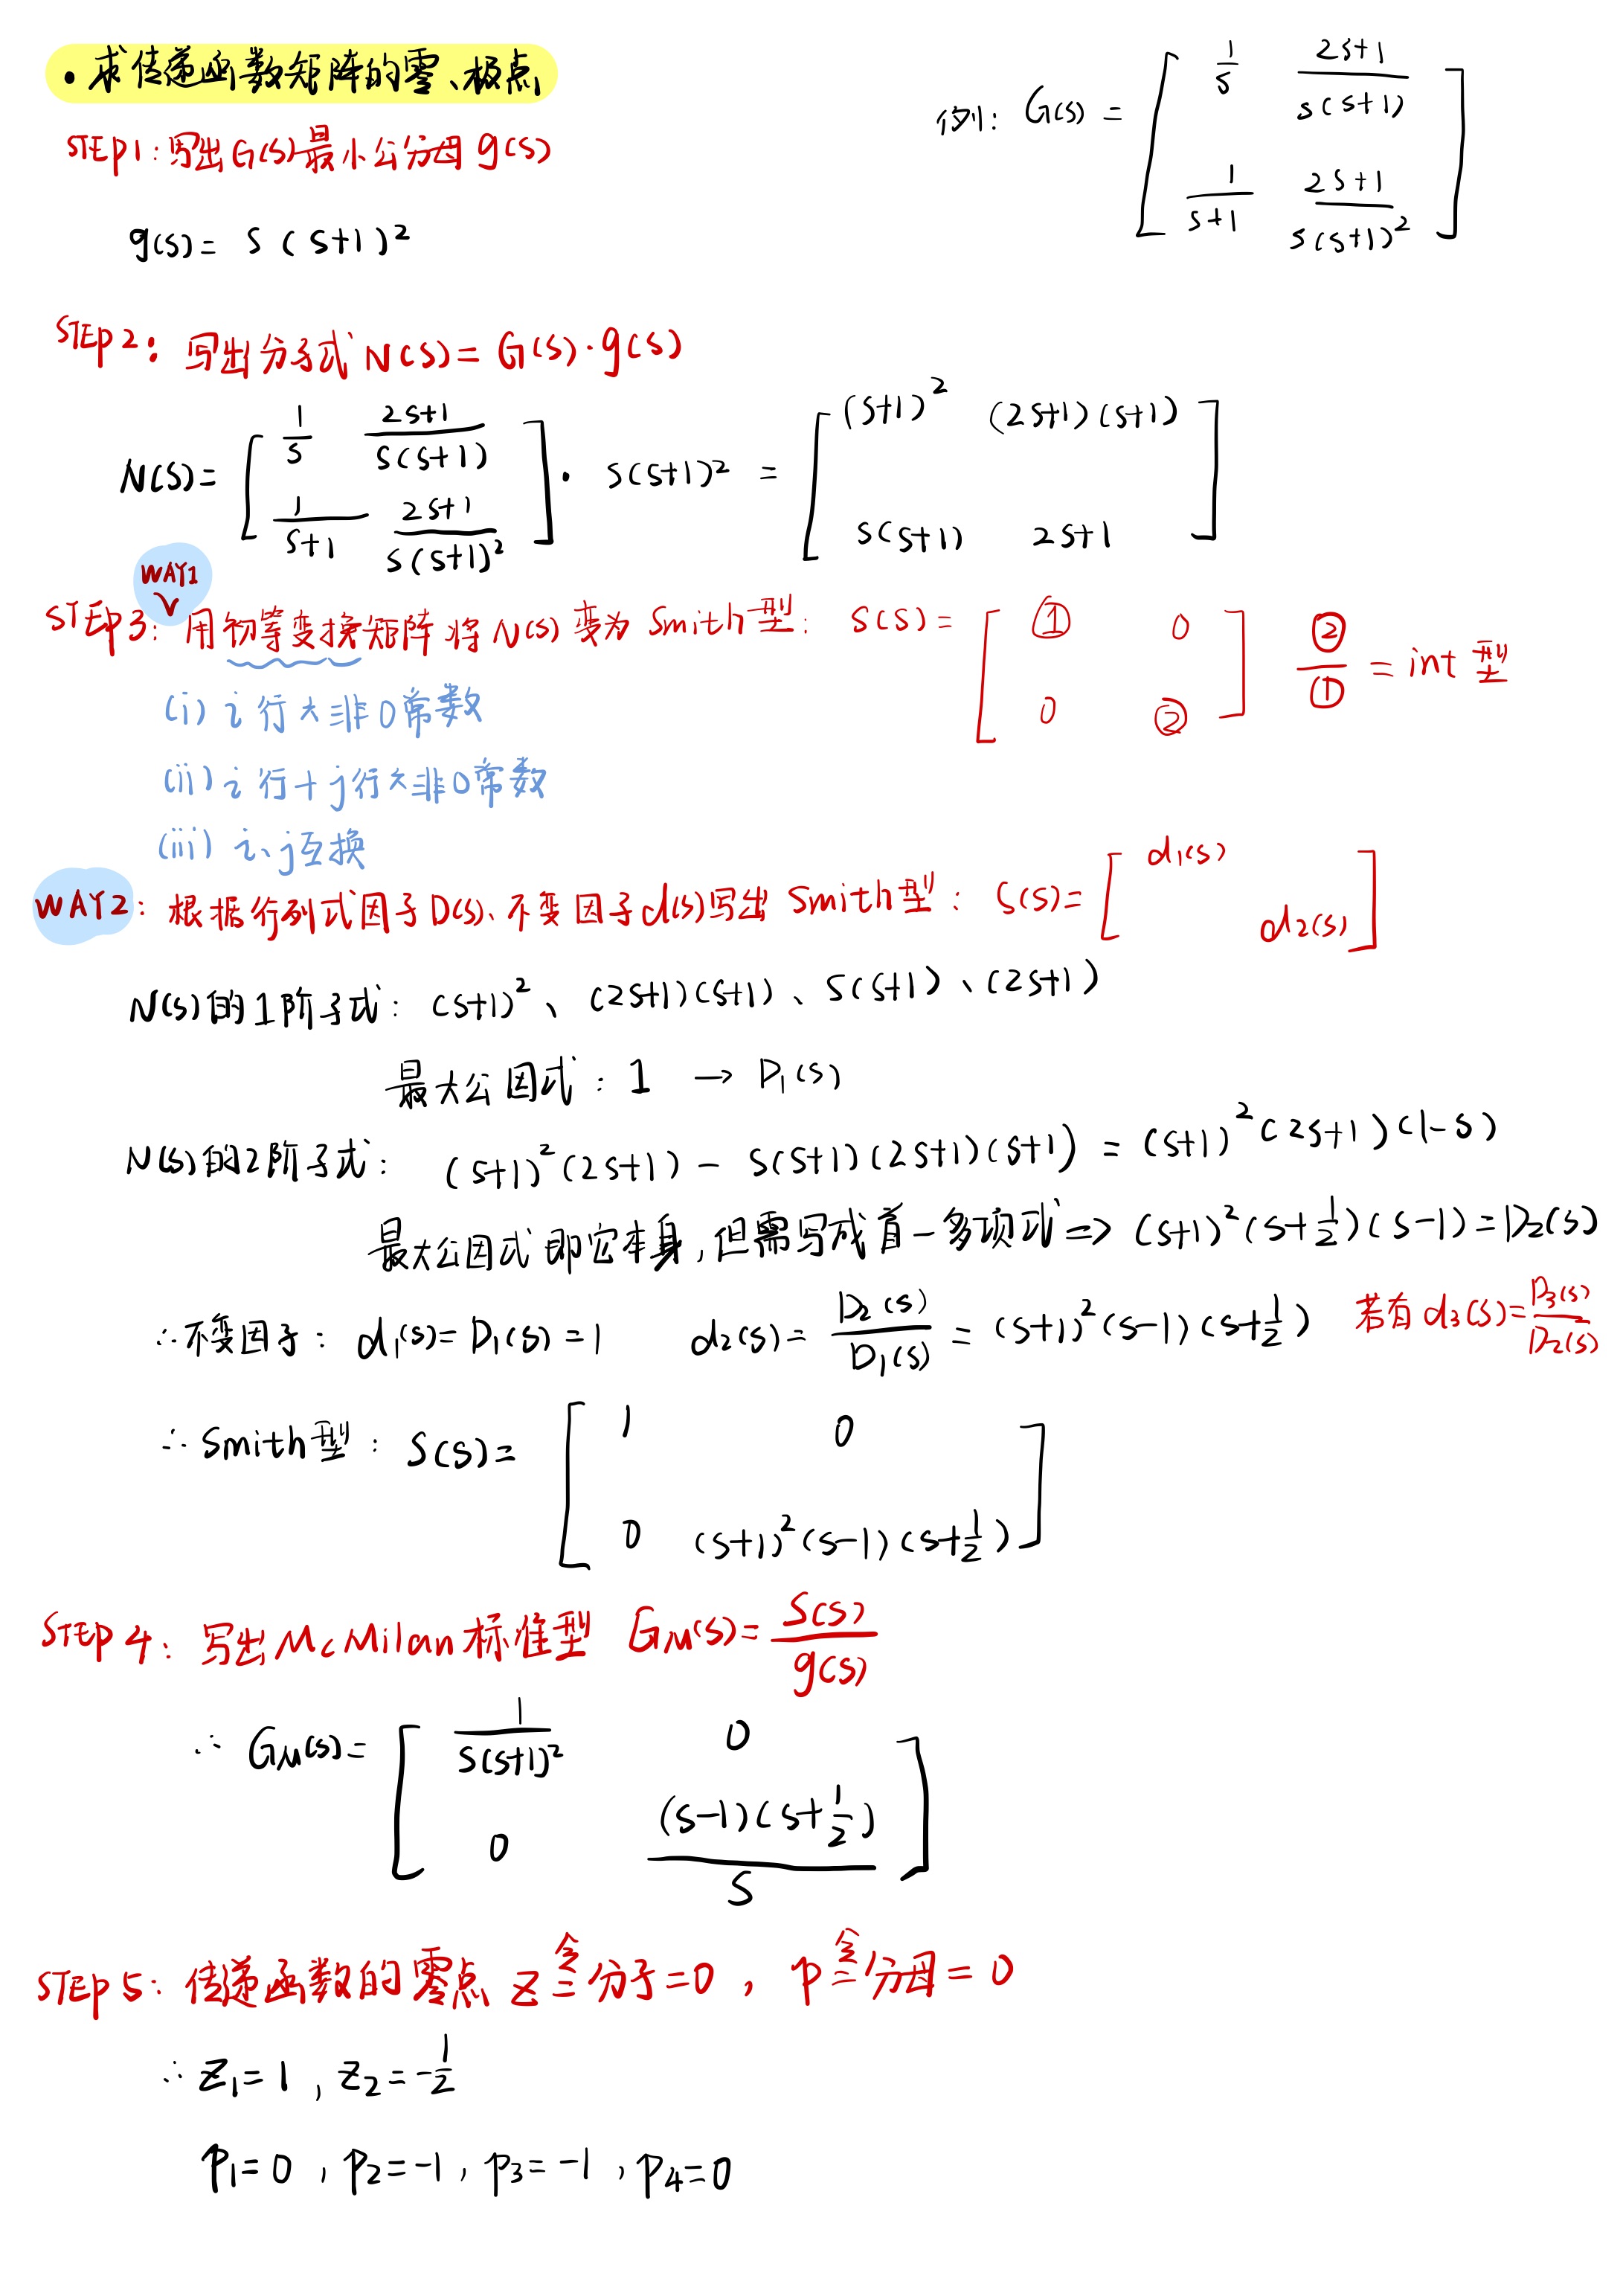 • 求传递函数矩阵的零、极点
例: G(s) = [ 1/s  (2s+1)/(s(s+1)) ; 1/(s+1)  (2s+1)/(s(s+1)²) ]
STEP1: 写出G(s)最小公分母 g(s)
g(s) = s(s+1)²
STEP2: 写出分子式 N(s) = G(s)·g(s)
N(s) = [ 1/s  (2s+1)/(s(s+1)) ; 1/(s+1)  (2s+1)/(s(s+1)²) ] · s(s+1)² = [ (s+1)²  (2s+1)(s+1) ; s(s+1)  2s+1 ]
WAY1
STEP3: 用初等变换矩阵将 N(s) 变为 Smith型: S(s) = [ ① 0 ; 0 ② ]  ②/① = int 型
(i) i 行×非0常数
(ii) i 行+j行×非0常数
(iii) i、j互换
WAY2: 根据行列式因子D(s)、不变因子d(s)写出 Smith型: S(s) = [ d₁(s) ; d₂(s) ]
N(s)的1阶子式: (s+1)²、(2s+1)(s+1)、s(s+1)、(2s+1)
最大公因式: 1 → D₁(s)
N(s)的2阶子式: (s+1)²(2s+1) - s(s+1)(2s+1)(s+1) = (s+1)²(2s+1)(1-s)
最大公因式即它本身,但需写成首一多项式 => (s+1)²(s+1/2)(s-1) = D₂(s)
∴不变因子: d₁(s) = D₁(s) = 1  d₂(s) = D₂(s)/D₁(s) = (s+1)²(s-1)(s+1/2)  若有 d₃(s) = D₃(s)/D₂(s)
∴ Smith型: S(s) = [ 1 0 ; 0 (s+1)²(s-1)(s+1/2) ]
STEP 4: 写出McMilan标准型 G_M(s) = S(s)/g(s)
∴ G_M(s) = [ 1/(s(s+1)²) 0 ; 0 (s-1)(s+1/2)/s ]
STEP 5: 传递函数的零点 z 令= 分子=0, p 令= 分母=0
∴ z₁=1, z₂=-1/2
p₁=0, p₂=-1, p₃=-1, p₄=0